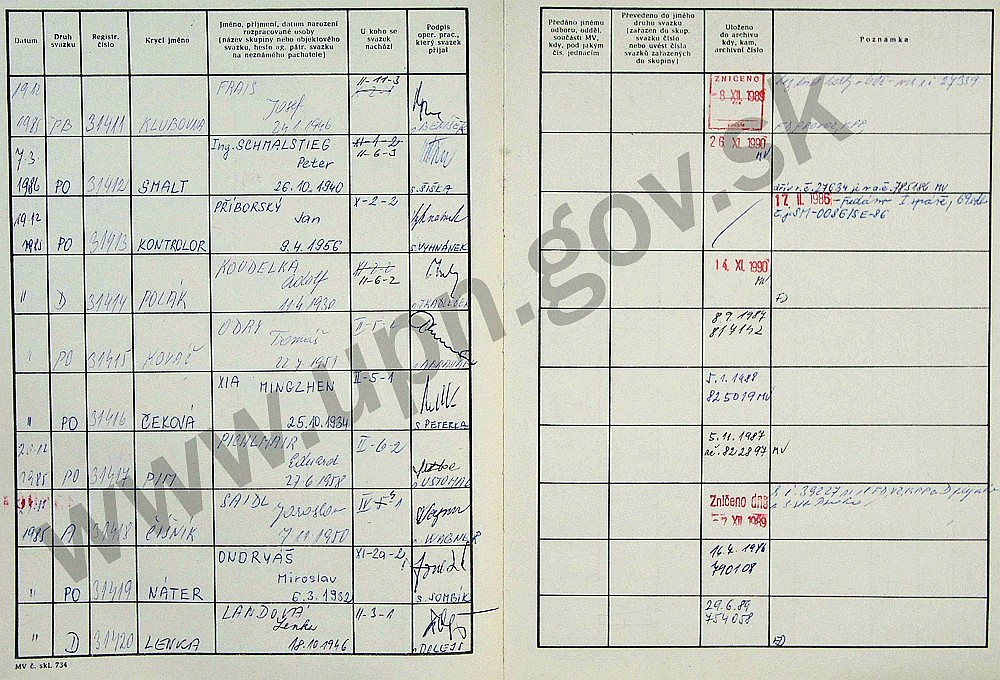 Datum
Druh svazku
Registr. číslo
Krycí jméno
Jméno, příjmení, datum narození
rozpracované osoby
(název skupiny nebo objektového
svazku, heslo ag. pátr. svazku
na neznámého pachatele)
U koho se
svazek
nachází
Podpis
oper. prac.,
který svazek
přijal
Předáno jinému
odboru, odděl.
součásti MV,
kdy, pod jakým
čís. jednacím
Převedeno do jiného
druhu svazku
(zařazen do skup.
svazku číslo
nebo uvést čísla
svazků zařazených
do skupiny)
Uloženo
do archivu
kdy, kam,
archivní číslo
Poznámka
19.12 FRAIS II-11-3 ZNIČENO
Josef -8. XII. 1989
1985 PB 31411 KLUBOVNA 24.1.1946
7.3. Ing. SCHMALSTIEG XI-1-2 26 XI. 1990
Peter II-6-3 MV
1986 PO 31412 SMALT 26.10.1940 s. ŠIŠKA
19.12 PŘÍBORSKÝ X-2-2 17. II. 1986
Jan
1985 PO 31413 KONTROLOR 9.4.1956 s. VYHNÁNEK
KOUDELKA 14. XI. 1990
Adolf II-6-2 MV
" D 31414 POLÁK 11.4.1930
ODRY II-5-2 8.9.1987
Tomáš 814142
" PO 31415 KOVÁŘ
XIA MINGZHEN II-5-1 5.1.1988
825019 MV
" PO 31416 ČEKOVÁ 25.10.1934 S PETERKA
PICHLMAIR II-6-2 5.11.1987
Eduard 822897 MV
1985 PO 31417 PIM 27.6.1958
SAIDL Zničeno dne
Jaroslav -7. XII 1989
1985 A 31418 ČÍŠNÍK 7.11.1950 WAGNER
ONDRYÁŠ XI-2a-2 16.4.1986
Miroslav 790108
" PO 31419 NÁTER 6.3.1932
LANDOVÁ II-3-1 29.6.89
Lenka 754058
" D 31420 LENKA 18.10.1946 DOLEJŠ
MV č. skl. 734
www.upn.gov.sk